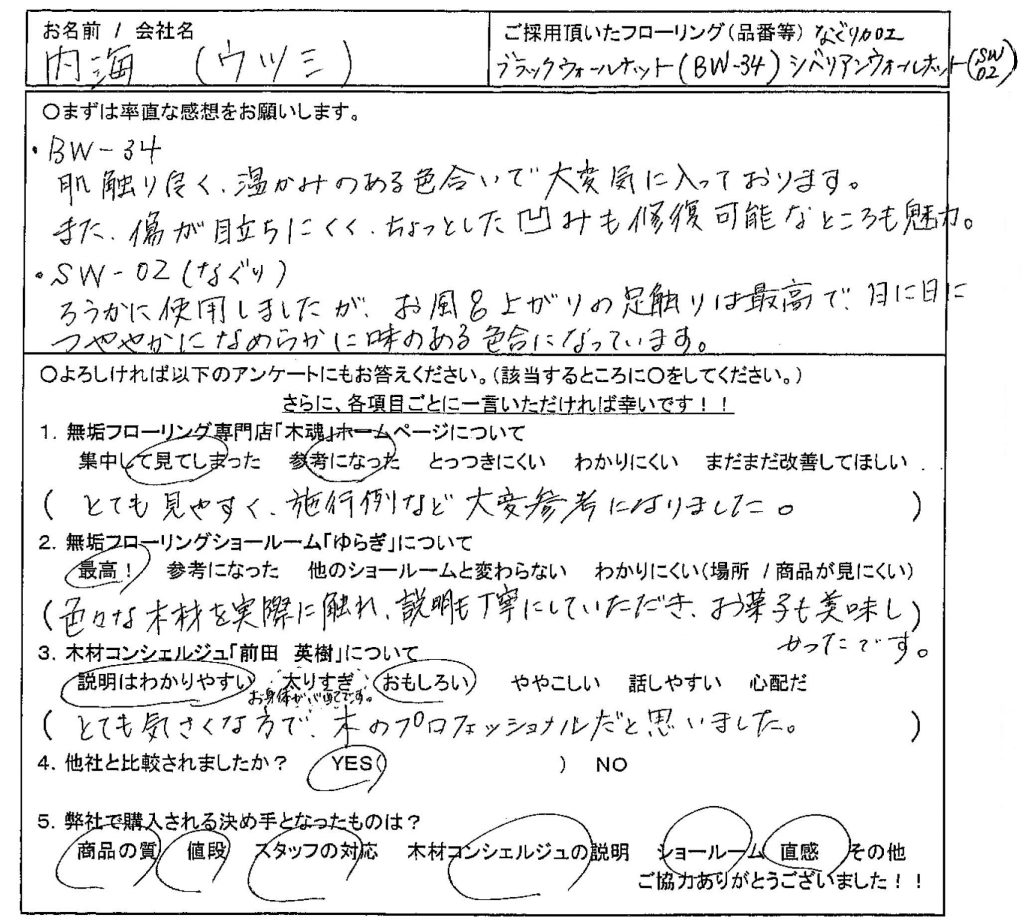 お名前 / 会社名
内海 (ウツミ)
ご採用頂いたフローリング(品番等) なぐり加02
ブラックウォールナット(BW-34) シベリアンウォールナット(SW02)
○まずは率直な感想をお願いします。
・BW-34
肌触り良く、温かみのある色合いで大変気に入っております。
また、傷が目立ちにくく、ちょっとした凹みも修復可能なところも魅力。
・SW-02(なぐり)
ろうかに使用しましたが、お風呂上がりの足触りは最高で、日に日に
つややかになめらかに味のある色合になっています。
○よろしければ以下のアンケートにもお答えください。(該当するところに○をしてください。)
さらに、各項目ごとに一言いただければ幸いです!!
1. 無垢フローリング専門店「木魂」ホームページについて
集中して見てしまった 参考になった とっつきにくい わかりにくい まだまだ改善してほしい
( とても見やすく、施行例など大変参考になりました。 )
2. 無垢フローリングショールーム「ゆらぎ」について
最高! 参考になった 他のショールームと変わらない わかりにくい(場所 / 商品が見にくい)
(色々な木材を実際に触れ、説明も丁寧にしていただき、お菓子も美味し)
かったです。
3. 木材コンシェルジュ「前田 英樹」について
説明はわかりやすい 太りすぎ おもしろい ややこしい 話しやすい 心配だ
お身体が心配です。
( とても気さくな方で、木のプロフェッショナルだと思いました。 )
4. 他社と比較されましたか? YES( ) NO
5. 弊社で購入される決め手となったものは?
商品の質 値段 スタッフの対応 木材コンシェルジュの説明 ショールーム 直感 その他
ご協力ありがとうございました!!